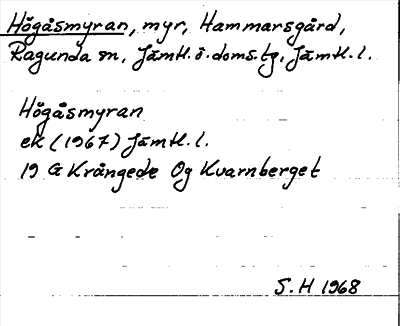 Högåsmyran, myr, Hammarsgård,
Ragunda sn, Jämtl.ö.doms.tg, Jämtl.l.
Högåsmyran
ek (1967) Jämtl.l.
19 G Krångede Og Kvarnberget
S.H 1968